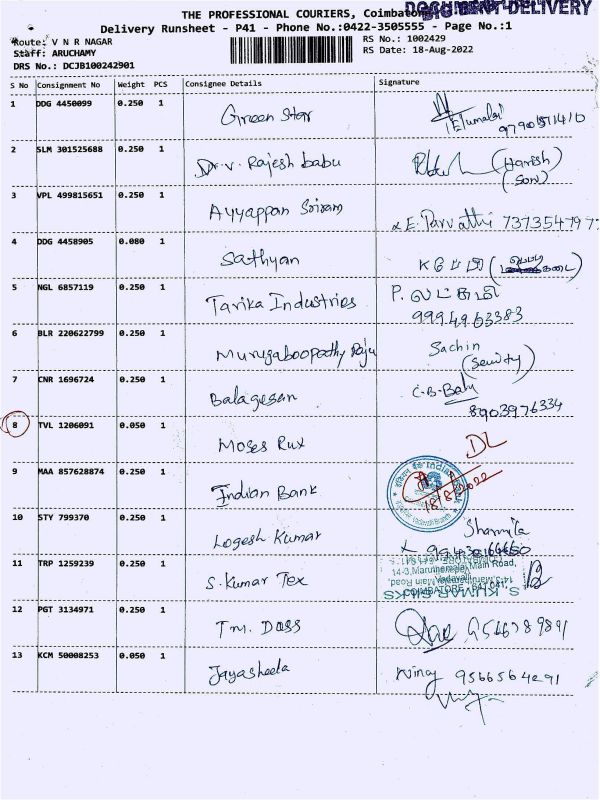 THE PROFESSIONAL COURIERS, Coimbatore
DOCUMENT DELIVERY
Delivery Runsheet - P41 - Phone No.:0422-3505555 - Page No.:1
Route: V N R NAGAR
RS No.: 1002429
Staff: ARUCHAMY
RS Date: 18-Aug-2022
DRS No.: DCJB100242901
S No Consignment No Weight PCS Consignee Details Signature
1 DDG 4450099 0.250 1 Green Star Elumalai
2 SLM 301525688 0.250 1 Dr.V. Rajesh babu (Harish)
(Son)
3 VPL 499815651 0.250 1 Ayyappan Sriram E. Parvathi 737354797
4 DDG 4458905 0.080 1 Sathyan
5 NGL 6857119 0.250 1 Tarika Industries P.
9994963383
6 BLR 220622799 0.250 1 Murugaboopathy Raju Sachin
7 CNR 1696724 0.250 1 Balagesan C.B-Balu
8903976334
8 TVL 1206091 0.050 1 Moses Rux DL
9 MAA 857628874 0.250 1 Indian Bank 18/8/2022
10 STY 799370 0.250 1 Logesh Kumar Sharmila
11 TRP 1259239 0.250 1 S. Kumar Tex
14-3, Maruthamalai Main Road,
Vadavalli
COIMBATORE - 641 041.
S. KUMAR SILKS
12 PGT 3134971 0.250 1 T.M. Dass 9546789891
13 KCM 50008253 0.050 1 Jayasheela Vinay 9566564291